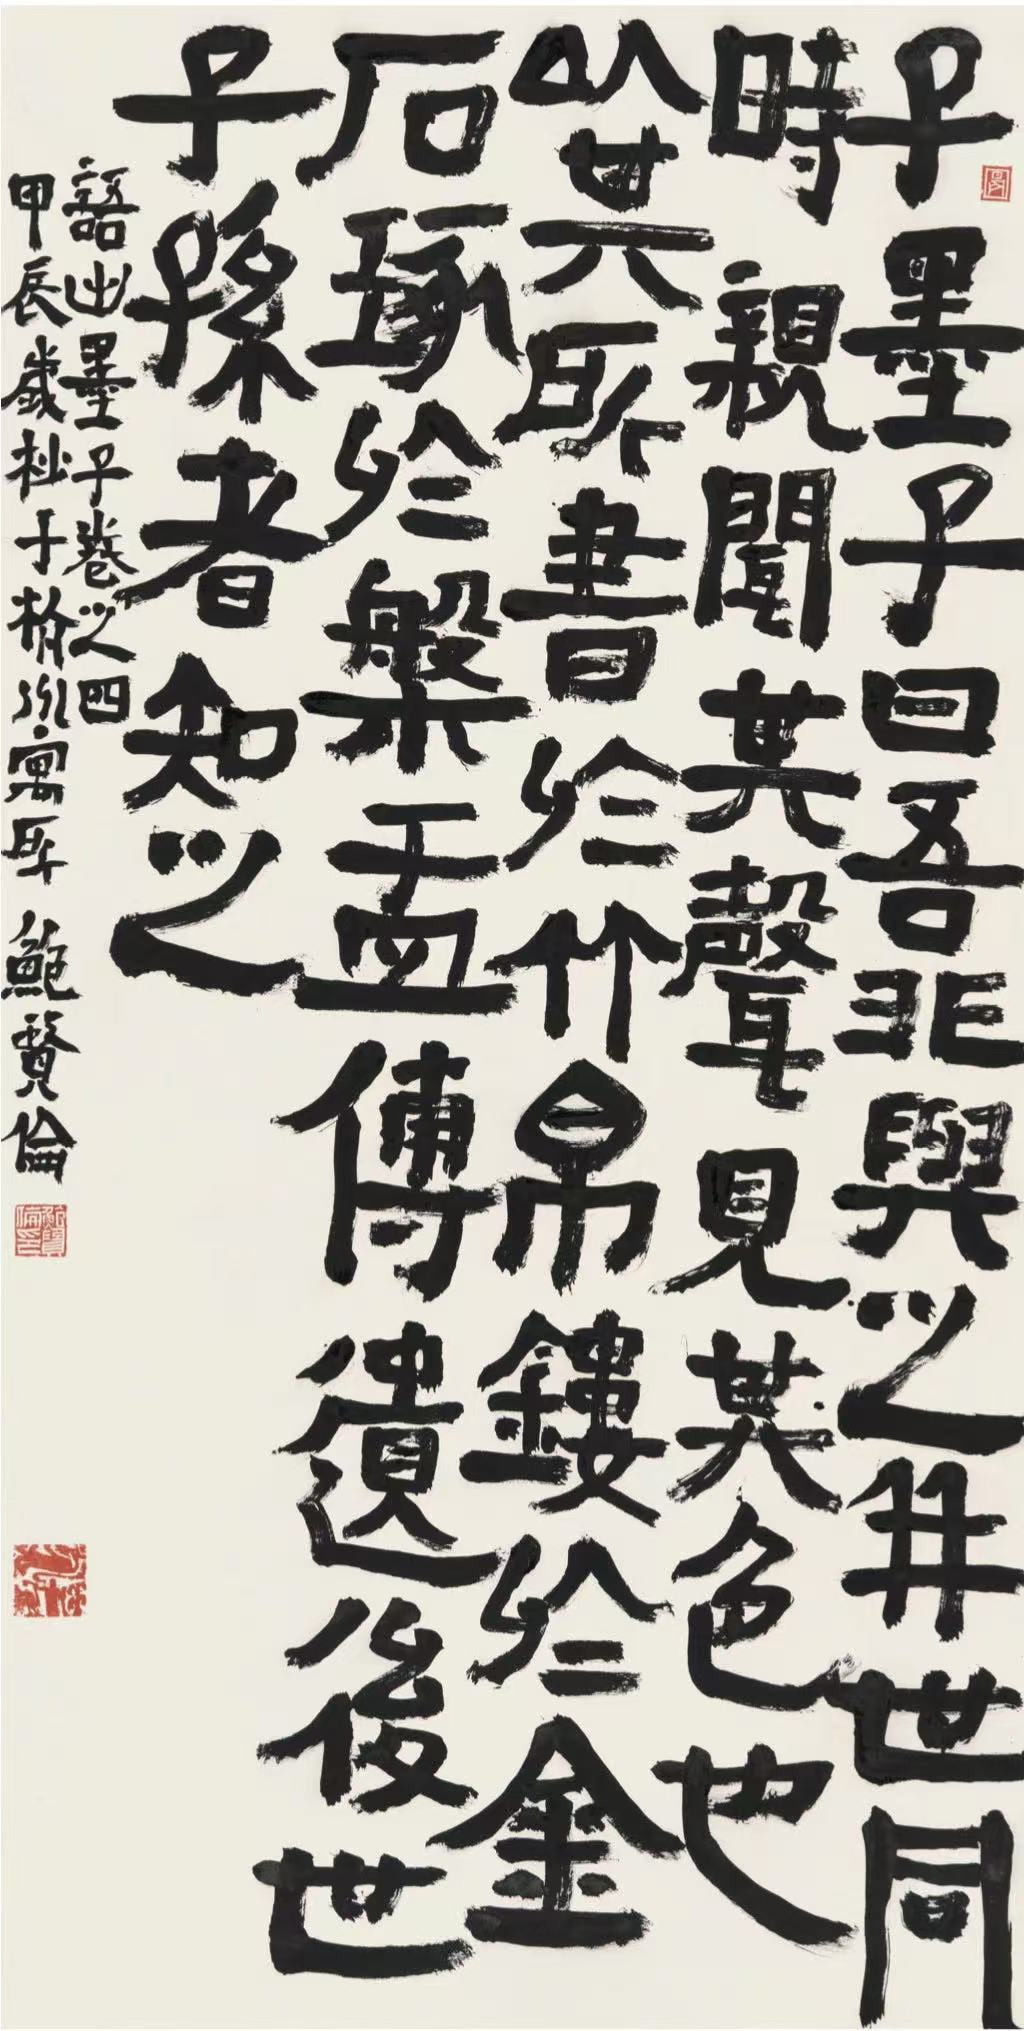 子墨子曰吾非與之并世同
時親聞其聲見其色也
以其所書於竹帛鏤於金
石琢於槃盂傳遺後世
子孫者知之
語出墨子卷之四
甲辰歲杪于寓所鮑賢倫